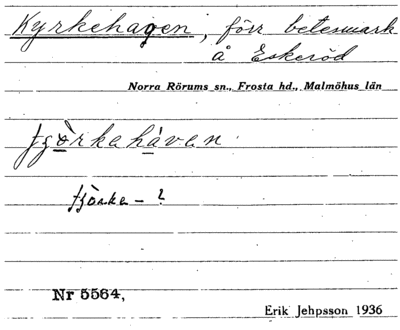 Kyrkehagen, förr betesmark
å Eskeröd
Norra Rörums sn., Frosta hd., Malmöhus län
tjòrkahàvan.
tjòrka – ?
Nr 5564,
Erik Jehpsson 1936